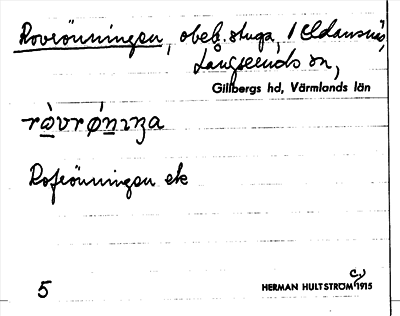 Rovrönningen, obeb. stuga, 1 Eldansnäs,
Långseruds sn,
Gillbergs hd, Värmlands län
Rofrönningen ek
5 HERMAN HULTSTRÖM c. 1915